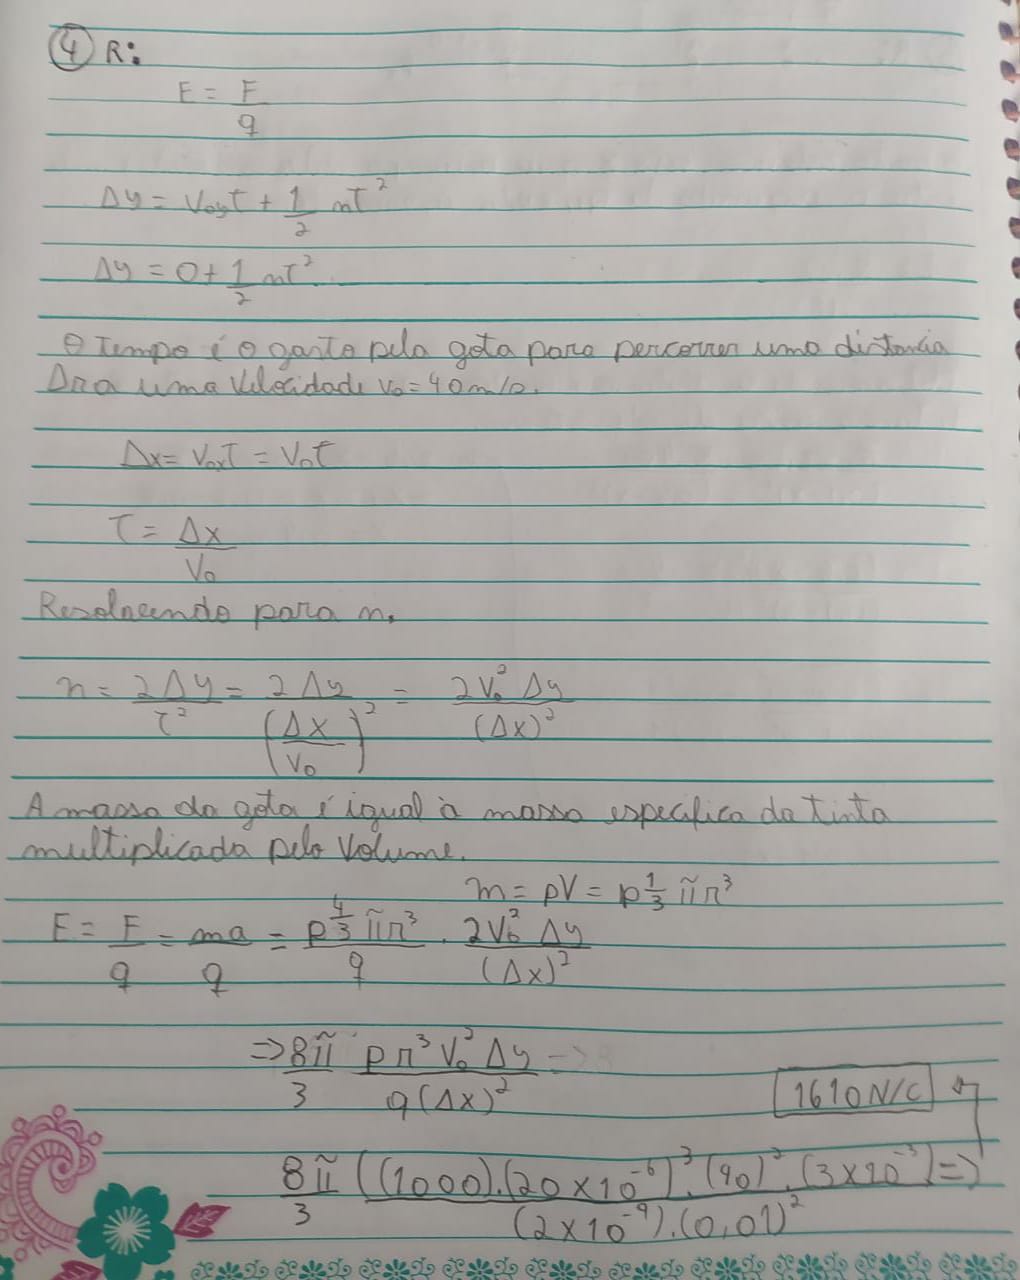 ④ R:
E = F/q
Δy = V₀yt + 1/2 nt²
Δy = 0 + 1/2 nt².
O tempo é o gasto pela gota para percorrer uma distancia
Δx a uma velocidade v₀ = 40 m/s.
Δx = V₀xt = V₀t
t = Δx/V₀
Resolvendo para n,
n = 2Δy/t² = 2Δy/(Δx/V₀)² = 2V₀²Δy/(Δx)²
A massa da gota é igual à massa especifica da tinta
multiplicada pelo Volume.
m = pV = p 1/3 πr³
E = F/q = ma/q = p 4/3 πr³/q · 2V₀²Δy/(Δx)²
=> 8π/3 pr³V₀²Δy/q(Δx)² =>
1610 N/C
8π/3 ((1000).(20×10⁻⁶)³.(40)².(3×10⁻³)/(2×10⁻⁹).(0,01)² =>